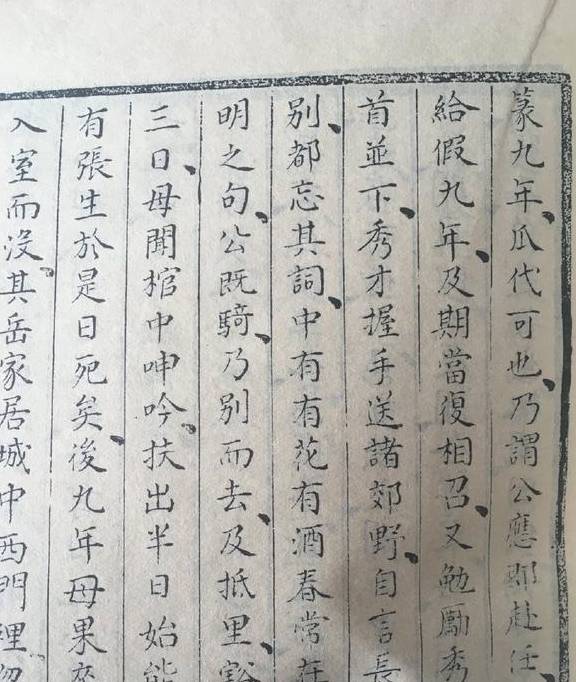 篆九年、瓜代可也、乃謂公應即赴任、
給假九年、及期當復相召、又勉勵秀
首並下、秀才握手送諸郊野、自言長
別、都忘其詞、中有有花有酒春常在
明之句、公既騎、乃別而去、及抵里、豁
三日、母聞棺中呻吟、扶出半日始能
有張生於是日死矣、後九年母果卒
入室而沒、其岳家居城中西門裡、忽